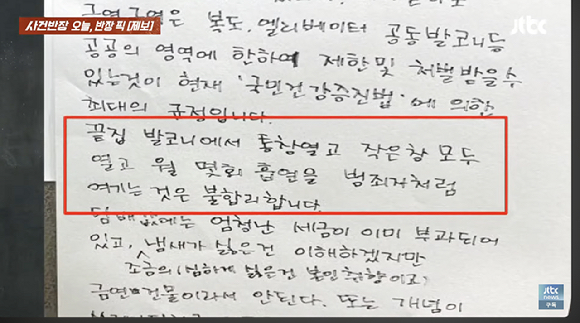 사건반장 오늘, 반장 픽 [제보]
jtbc
금연구역은 복도, 엘리베이터 공동발코니등
공공의 영역에 한하여 제한 및 처벌받을수
있는것이 현재 '국민건강증진법'에 의한
최대의 규정입니다.
끝집 발코니에서 통창열고 작은창 모두
열고 월 몇회 흡연을 범죄자처럼
여기는 것은 불합리합니다.
담배값에는 엄청난 세금이 이미 부과되어
있고, 냄새가 싫은건 이해하겠지만
조금의 (심하게 싫은건 본인취향이고)
금연건물이라서 안된다. 또는 개념이
jtbc
NEWS
구독